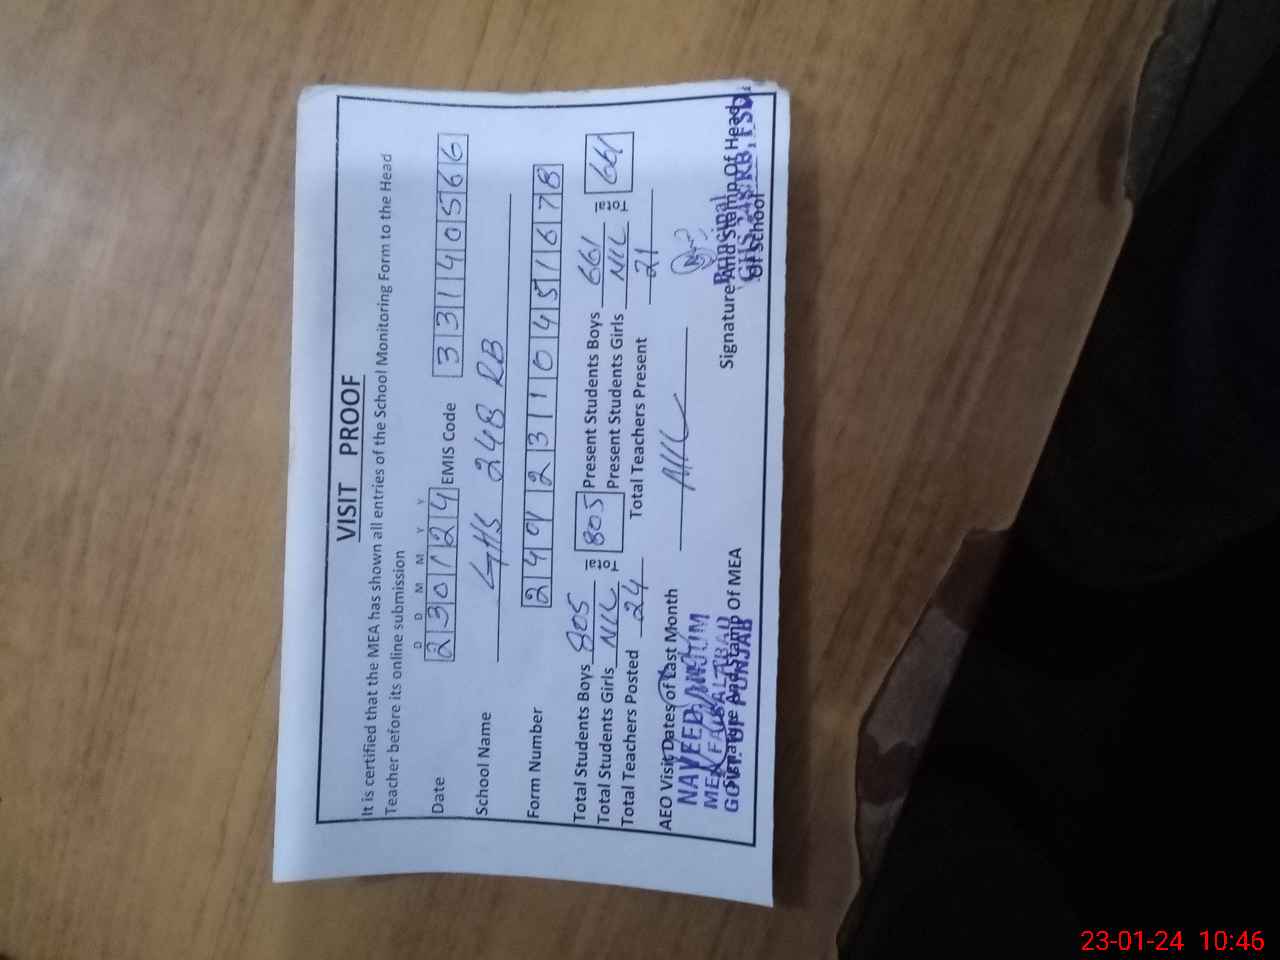 VISIT PROOF
It is certified that the MEA has shown all entries of the School Monitoring Form to the Head
Teacher before its online submission
D D M M Y Y
Date 230124 EMIS Code 33140566
School Name GHS 248 RB
Form Number 240123110451678
Total Students Boys 805 Total 805 Present Students Boys 661 Total 661
Total Students Girls NIL Present Students Girls NIL
Total Teachers Posted 24 Total Teachers Present 21
AEO Visit Dates of Last Month NIL
NAVEED ANJUM
MEA FAISALABAD
GOVT. OF PUNJAB
Signature And Stamp Of MEA
Principal
GHS 248 RB, FSD.
Signature And Stamp Of Head
Of School
23-01-24 10:46